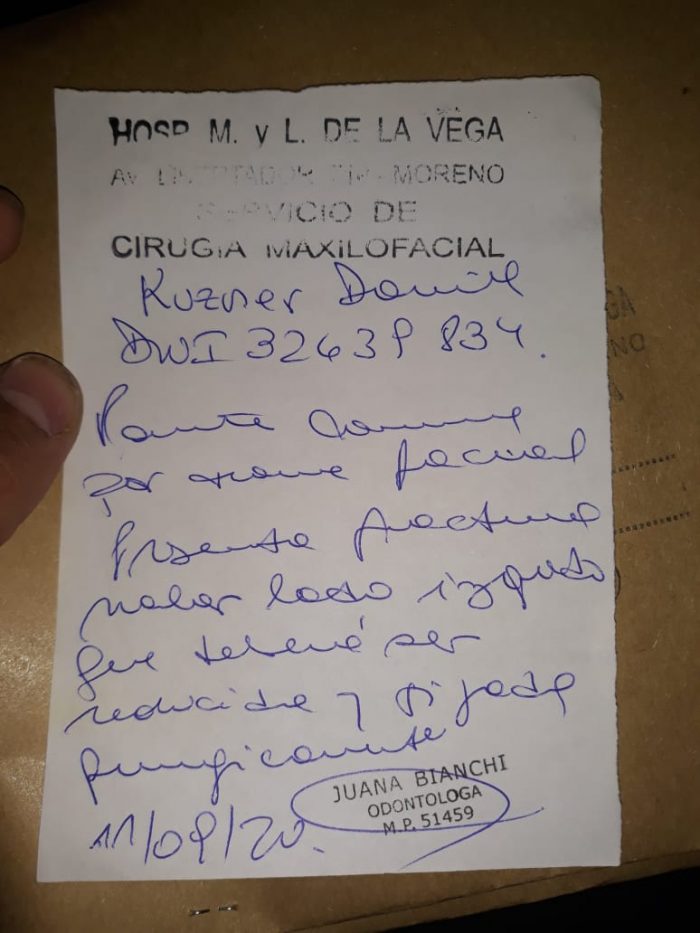 HOSP. M. y L. DE LA VEGA
AV LIBERTADOR MORENO
SERVICIO DE
CIRUGIA MAXILOFACIAL
Kuzner
DNI 32639 834.
por facial
Presenta fractura
malar lado izquierdo
que deberá ser
reducida y fijada
quirurgicamente
11/09/20.
JUANA BIANCHI
ODONTOLOGA
M.P. 51459